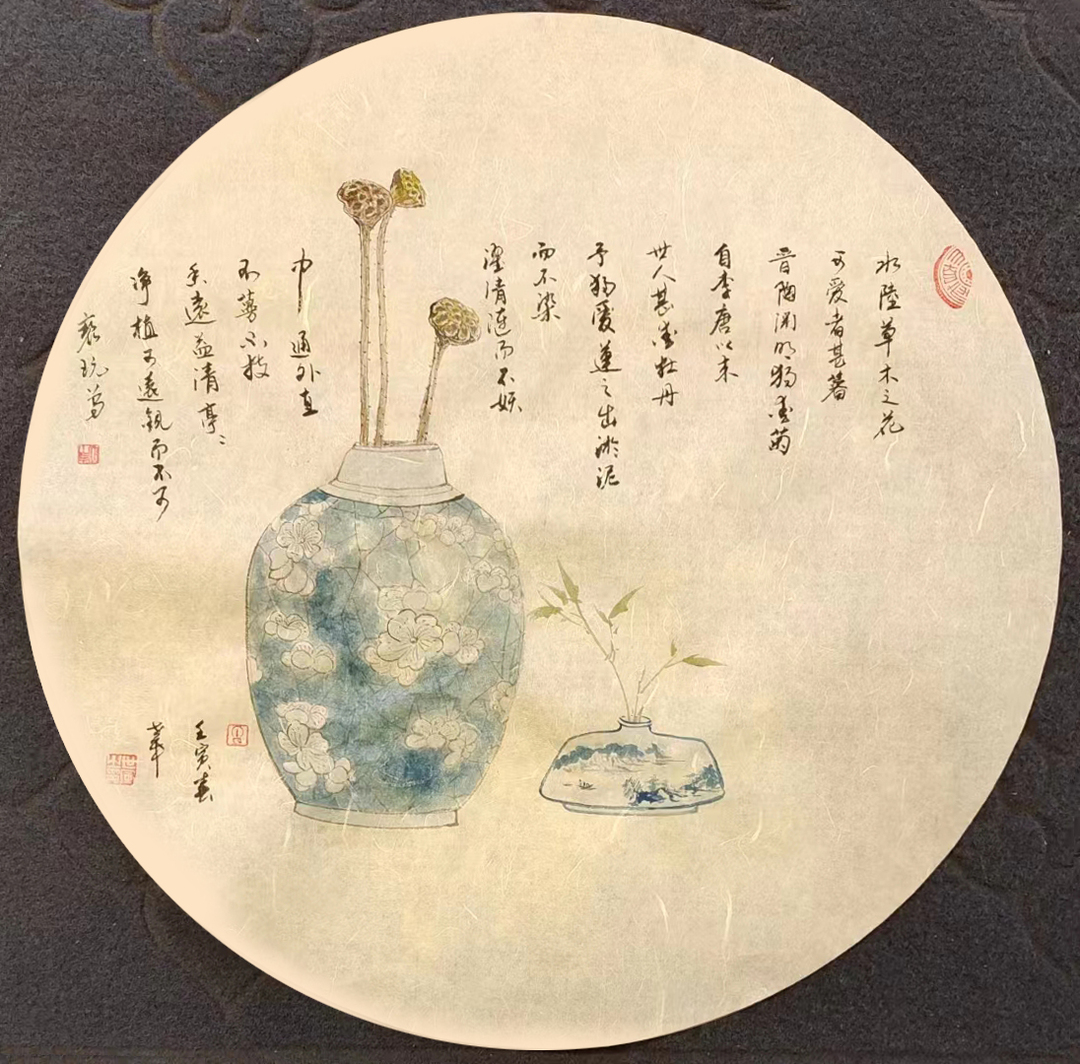 水陸草木之花
可愛者甚蕃
晋陶渊明獨愛菊
自李唐以来
世人甚愛牡丹
予獨愛蓮之出淤泥
而不染
濯清漣而不妖
中通外直
不蔓不枝
香遠益清亭〻
净植可遠觀而不可
褻玩焉
壬寅春